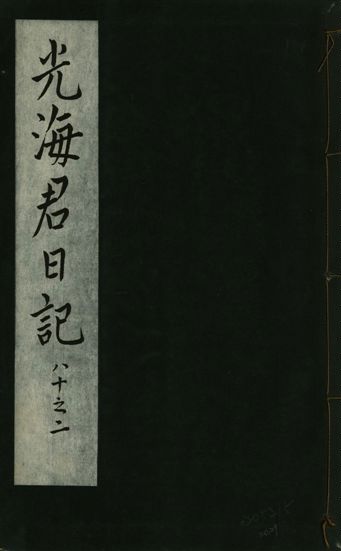 光海君日記
八十之二